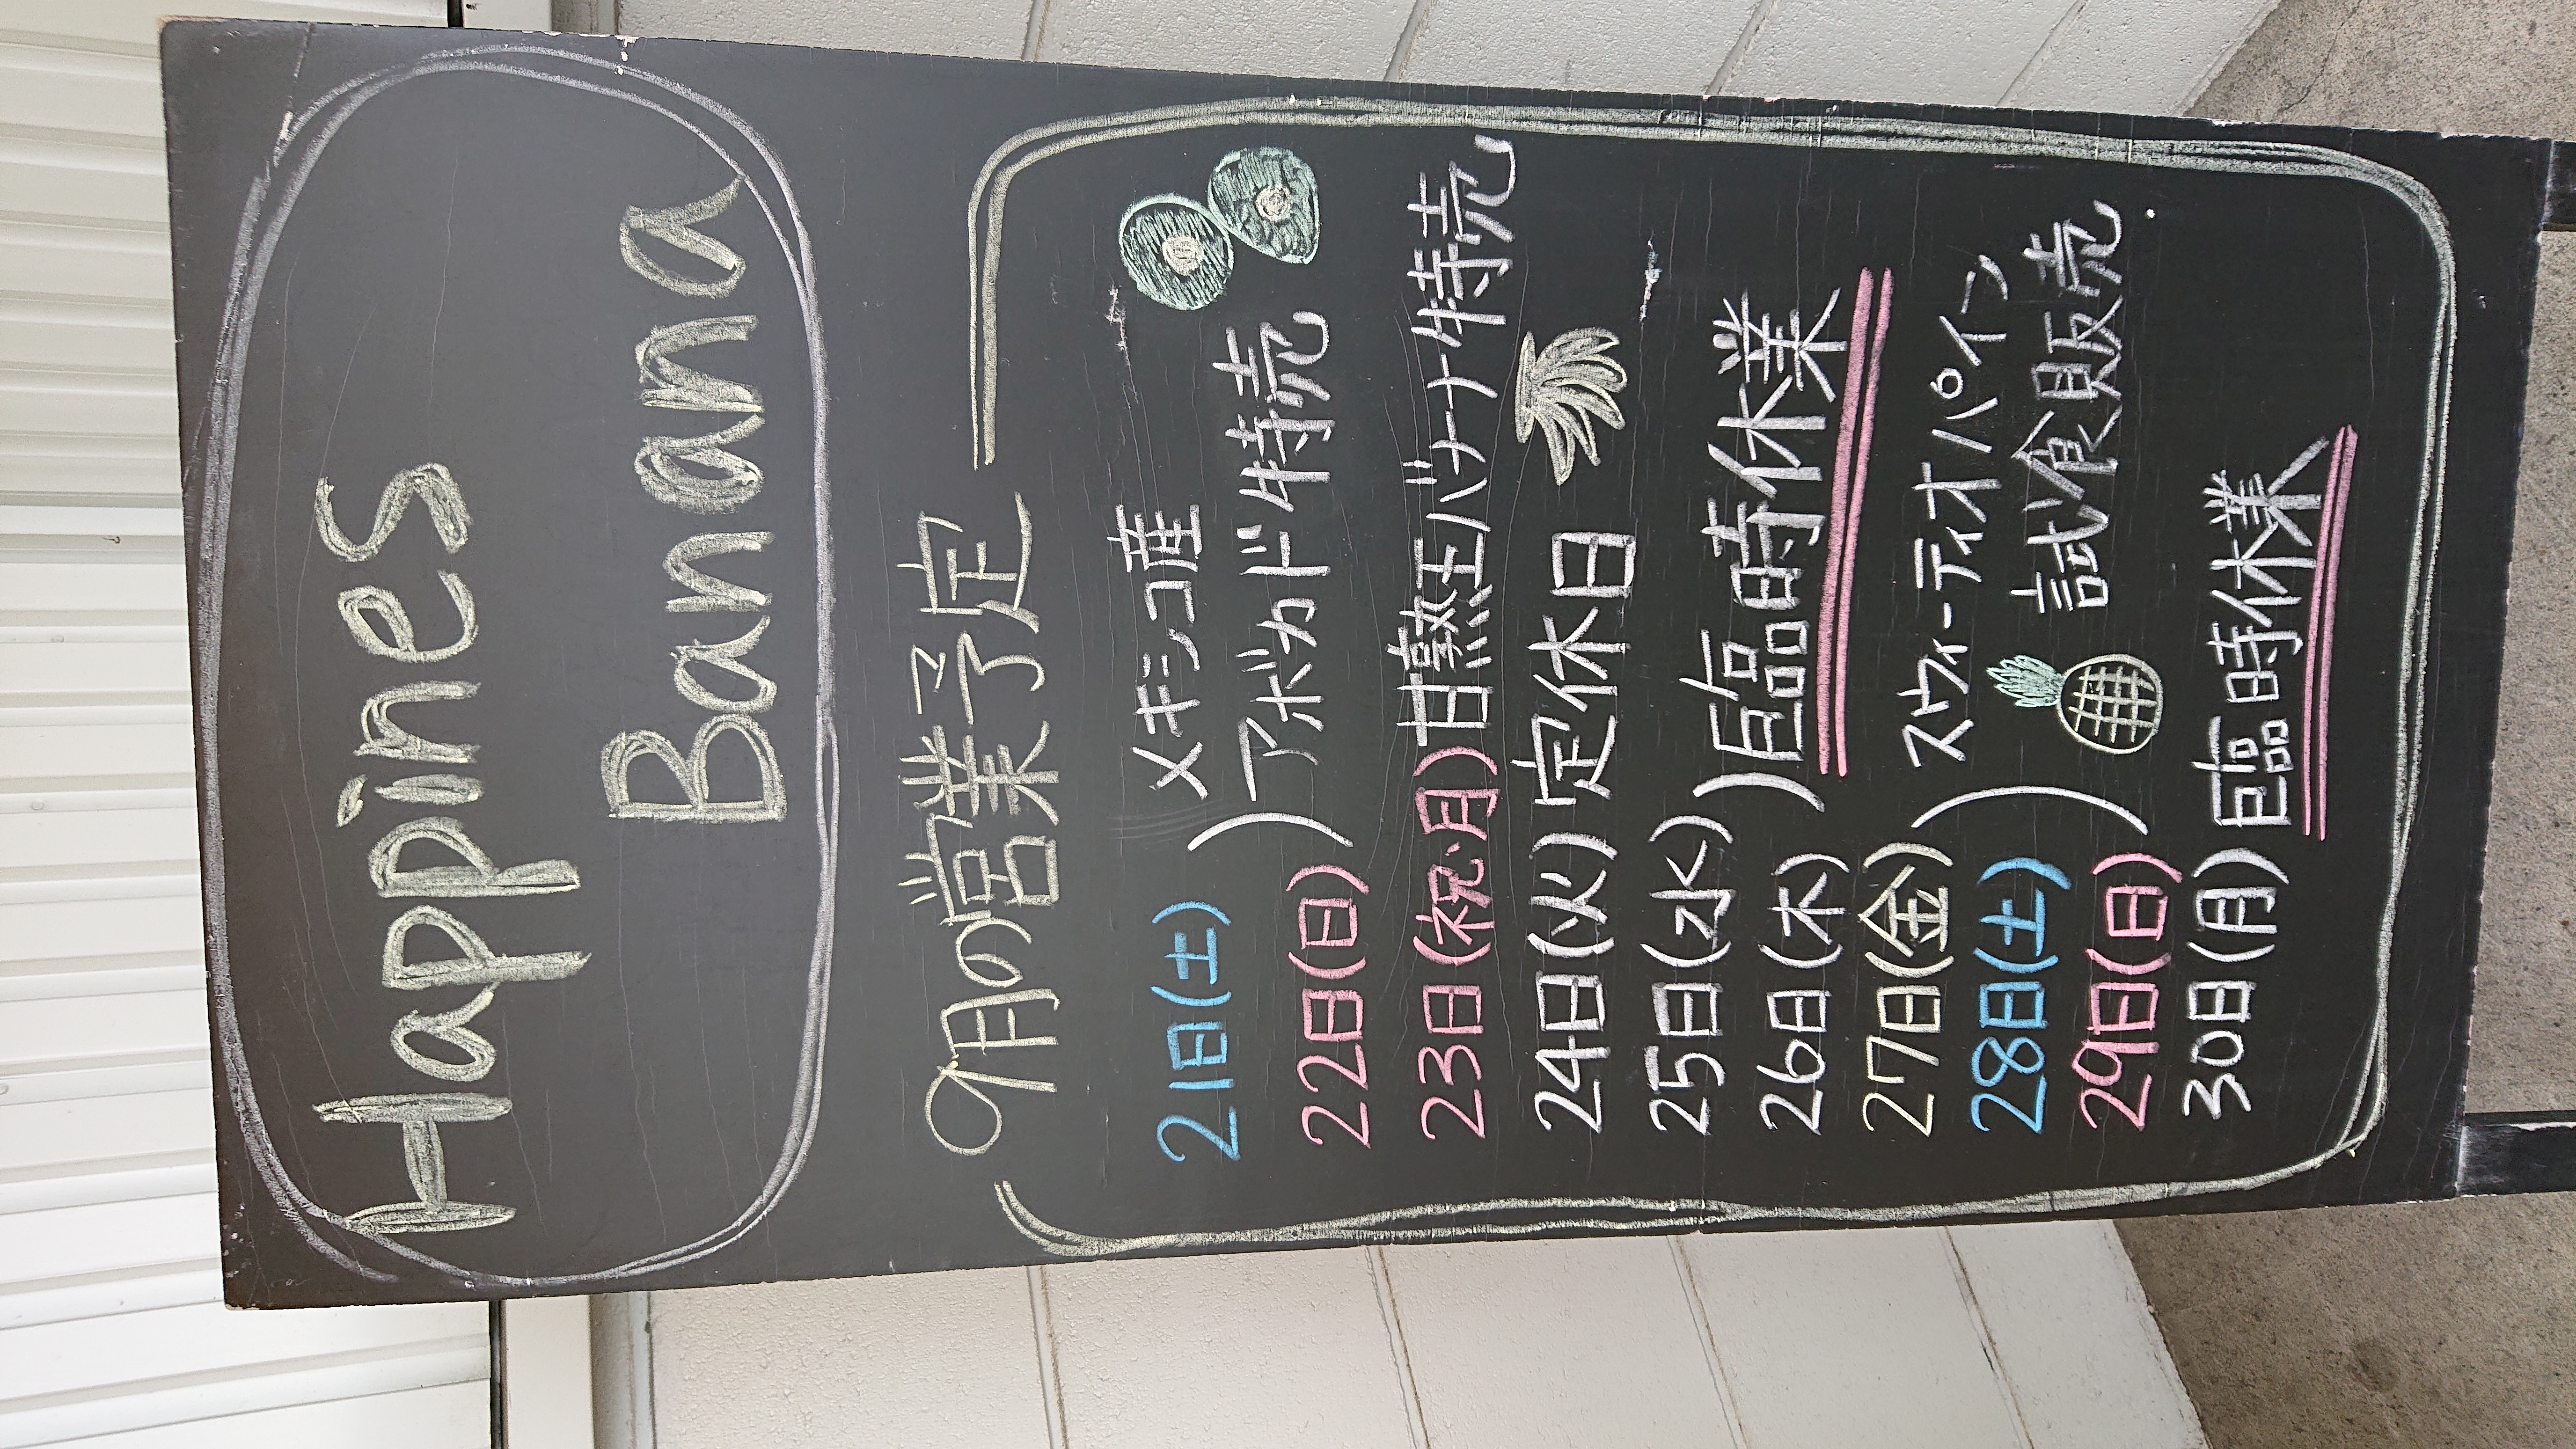 Happines
Banana
9月の営業予定
21日(土)
22日(日)
メキシコ産
アボカド特売
23日(祝・月)甘熟王バナナ特売
24日(火)定休日
25日(水)
26日(木)
臨時休業
27日(金)
28日(土)
29日(日)
スウィーティオパイン
試食販売
30日(月)臨時休業